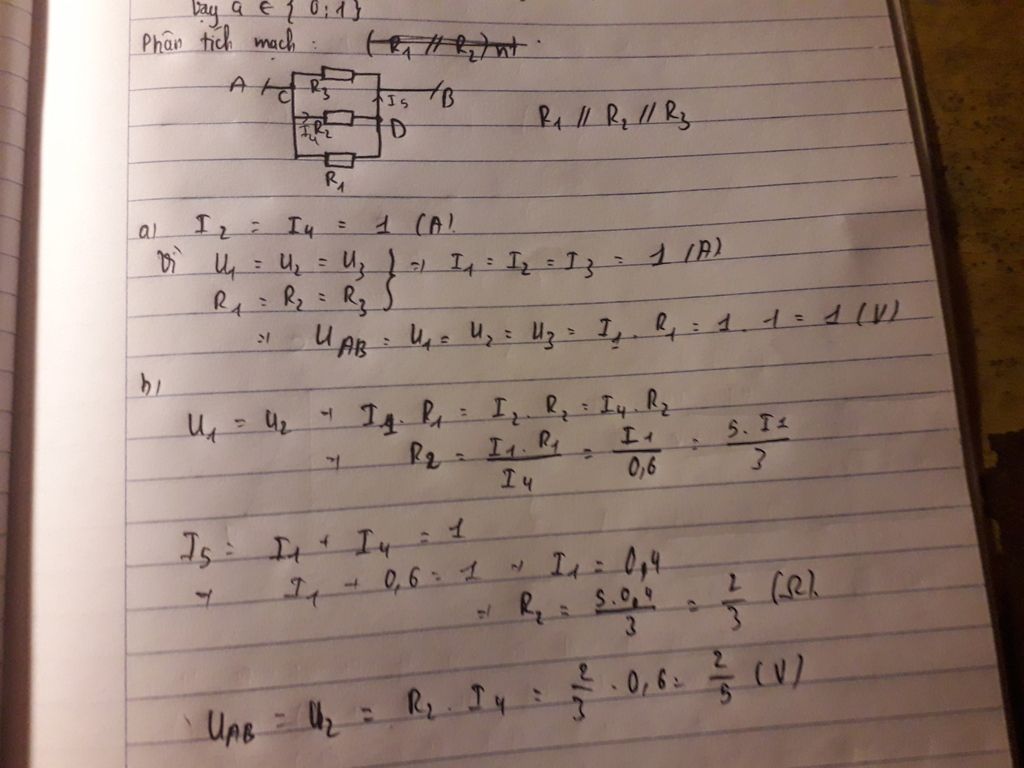 Vậy a ∈ { 0; 1 }
Phân tích mạch : (R1 // R2) nt
A C R3 I5 B
I4 R2 D
R1
R1 // R2 // R3
a) I2 = I4 = 1 (A).
Vì U1 = U2 = U3 } => I1 = I2 = I3 = 1 (A)
R1 = R2 = R3
=> UAB = U1 = U2 = U3 = I1 . R1 = 1 . 1 = 1 (V)
b)
U1 = U2 → I1 . R1 = I2 . R2 = I4 . R2
→ R2 = I1 . R1 / I4 = I1 / 0,6 = 5 . I1 / 3
I5 = I1 + I4 = 1
→ I1 + 0,6 = 1 → I1 = 0,4
=> R2 = 5 . 0,4 / 3 = 2/3 (Ω).
UAB = U2 = R2 . I4 = 2/3 . 0,6 = 2/5 (V)